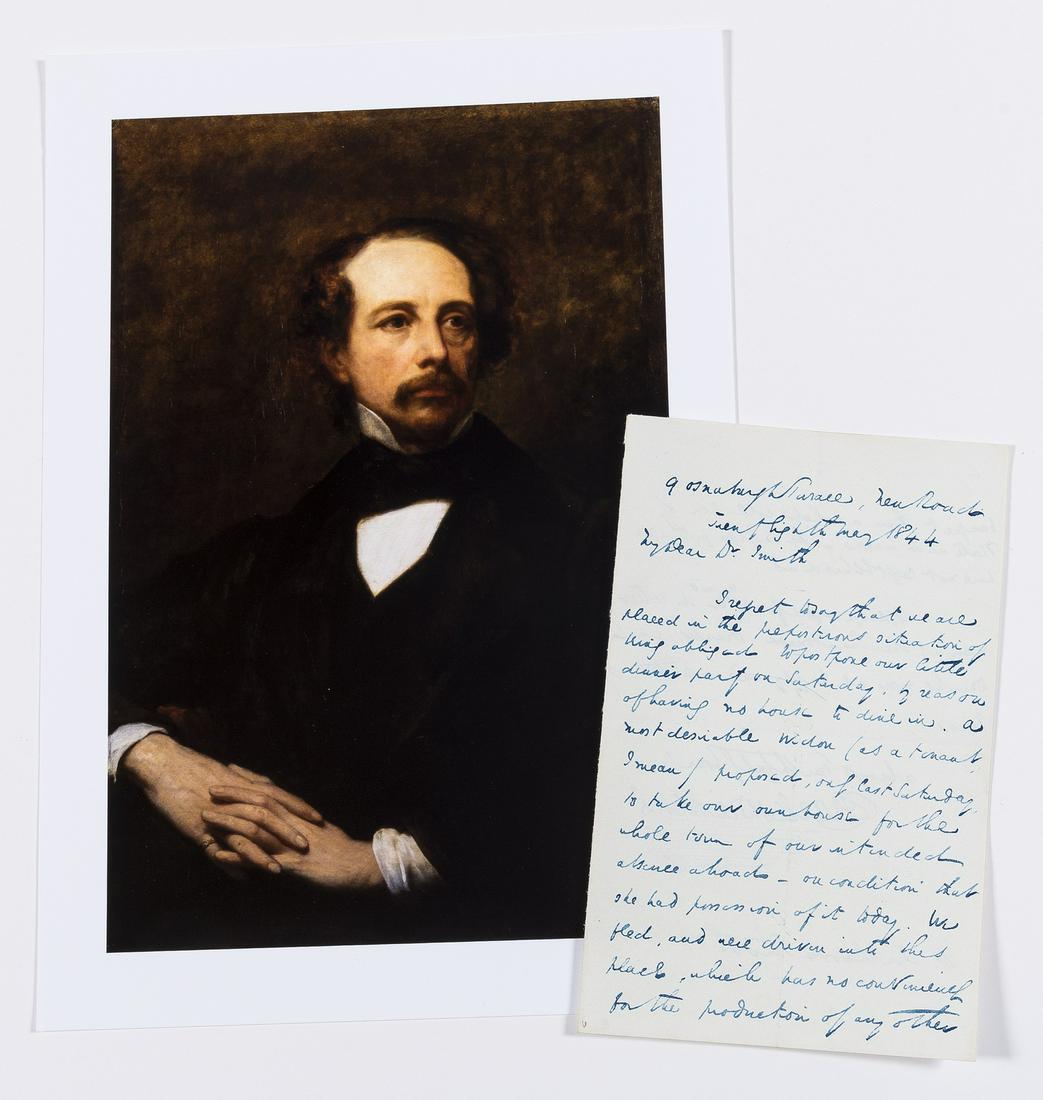 9 Osnaburgh Terrace, New Road
Twenflighth May 1844
My Dear Dr. Smith
I regret to say that we are
placed in the preposterous situation of
being obliged to postpone our little
dinner party on Saturday, by reason
of having no house to dine in. A
most desirable widow (as a tenant,
I mean) proposed, only last Saturday,
to take our own house for the
whole term of our intended
absence abroad - on condition that
she had possession of it today. We
fled, and were driven into this
place, which has no convenience
for the production of any other